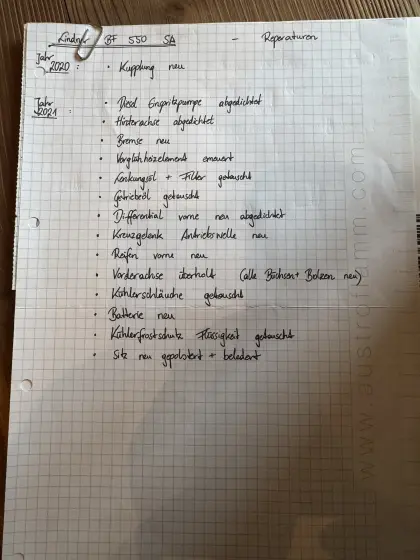 Lindner BF 550 SA - Reparaturen
Jahr
2020 : • Kupplung neu
Jahr
2021 : • Diesel Einspritzpumpe abgedichtet
• Hinterachse abgedichtet
• Bremse neu
• Vorglühheizelement erneuert
• Lenkungsöl + Filter getauscht
• Getriebeöl getauscht
• Differential vorne neu abgedichtet
• Kreuzgelenk Antriebswelle neu
• Reifen vorne neu
• Vorderachse überholt (alle Büchsen + Bolzen neu)
• Kühlerschläuche getauscht
• Batterie neu
• Kühlerfrostschutz Flüssigkeit getauscht
• Sitz neu gepolstert + beledert